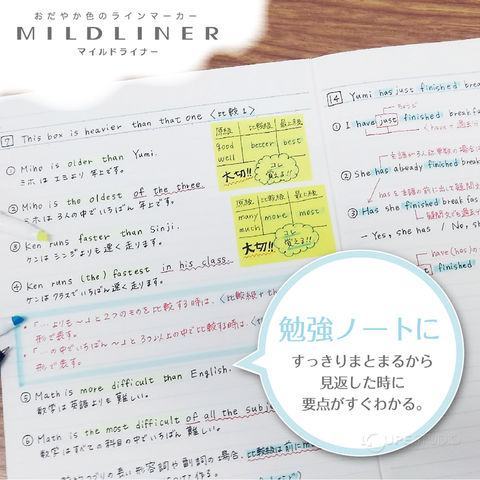 おだやか色のラインマーカー
MILDLINER
マイルドライナー
7 This box is heavier than that one 〈比較1〉
① Miho is older than Yumi.
ミホはエミより年上です。
② Miho is the oldest of the three.
ミホは3人の中でいちばん年上です。
③ Ken runs faster than Sinji.
ケンはシンジよりも速く走ります。
④ Ken runs (the) fastest in his class.
ケンはクラスでいちばん速く走ります。
・「…よりも～」と2つのものを比較する時は、〈比較級+th
形で表す。
・「…の中でいちばん～」と3つ以上の中で比較する時は、〈th
形で表す。
⑤ Math is more difficult than English.
数学は英語よりも難しい。
⑥ Math is the most difficult of all the subje
数学はすべての科目の中でいちばん難しい。
の長い形容詞や副詞の場合、比較級は前にm
原級 比較級 最上級
good better best
well
大切!!
コレ
覚える!!
原級 比較級 最上級
many more most
much
大切!!
コレ
覚える!!
14 Yumi has just finished breakf
① I have just finished breakfa
② She has already finished break
③ Has she finished breakfas
- Yes, she has / No, sh
have(has)の
finished
勉強ノートに
すっきりまとまるから
見返した時に
要点がすぐわかる。